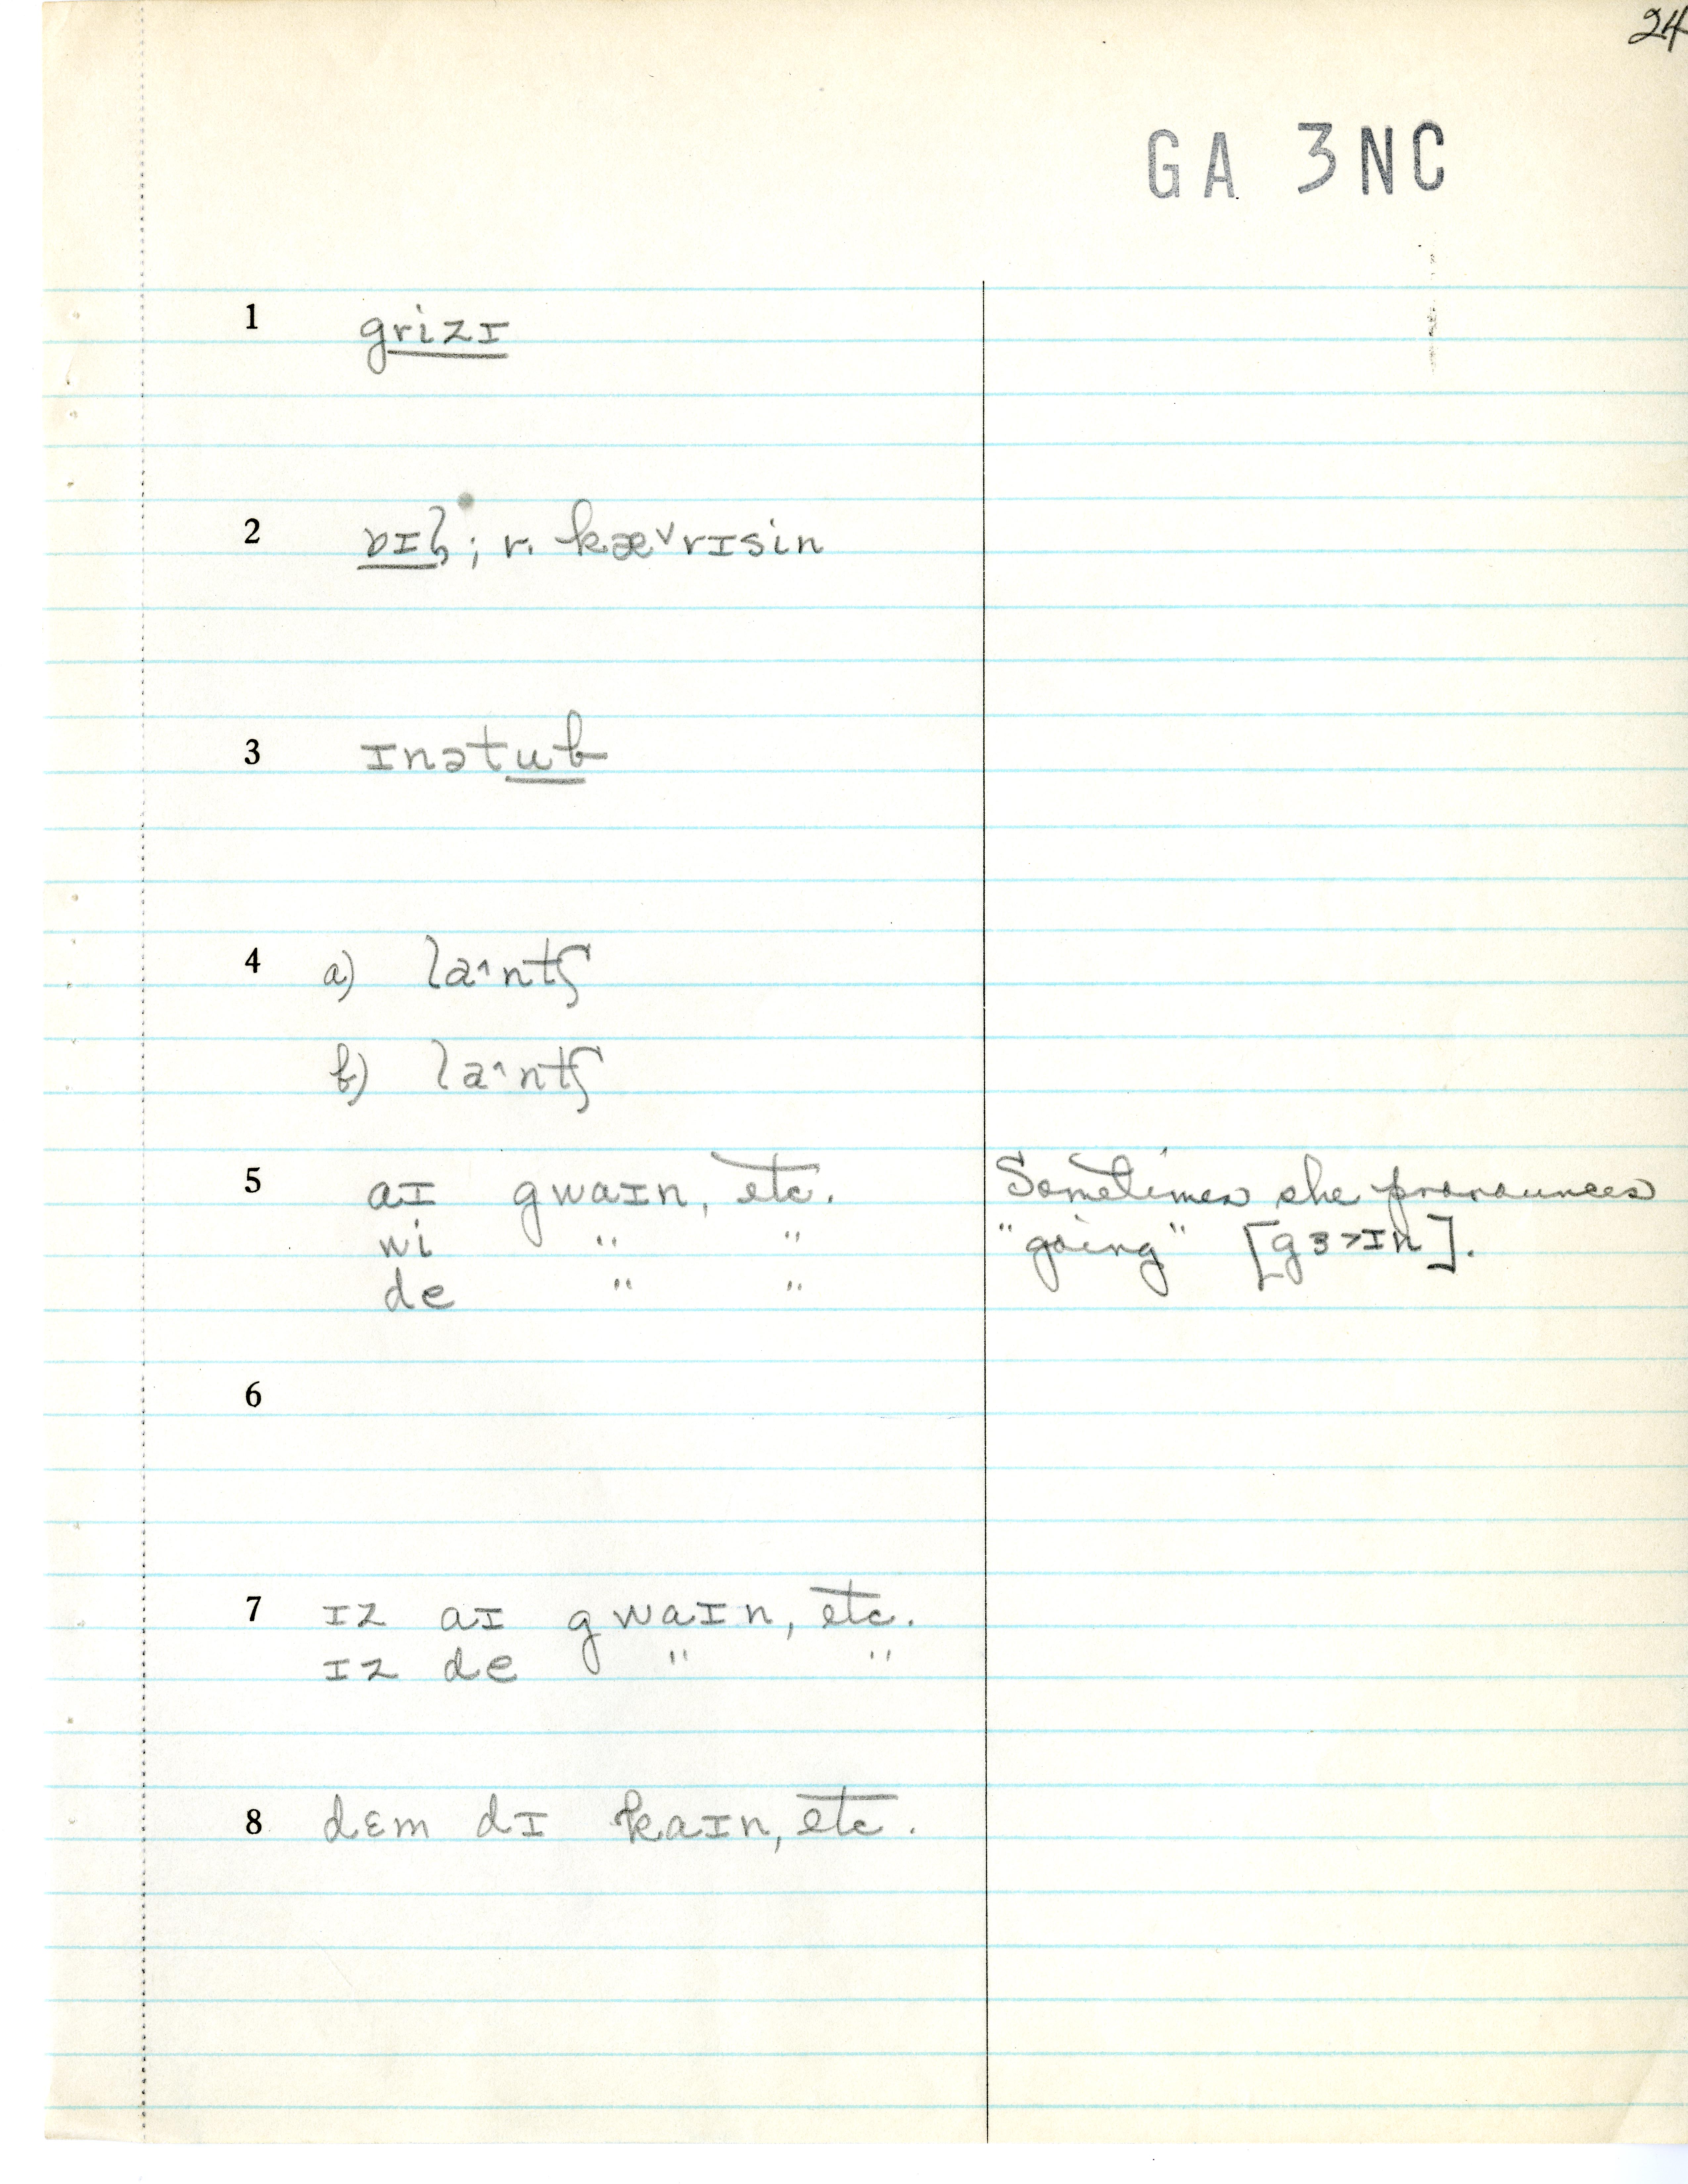 24
GA 3NC
1 grizɪ
2 ɒɪɫ; r. kæ˅rɪsin
3 ɪnətub
4 a) la˄ntʃ
b) la˄ntʃ
5 aɪ gwaɪn, etc. Sometimes she pronounces
wi " " "going" [gɜ˃ɪn].
de " "
6
7 ɪz aɪ gwaɪn, etc.
ɪz de " "
8 dɛm dɪ kaɪn, etc.